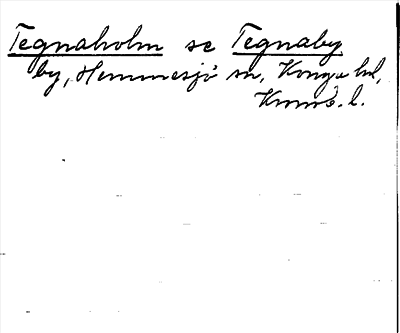 Tegnaholm se Tegnaby
by, Hemmesjö sn, Konga hd,
Kronob. l.